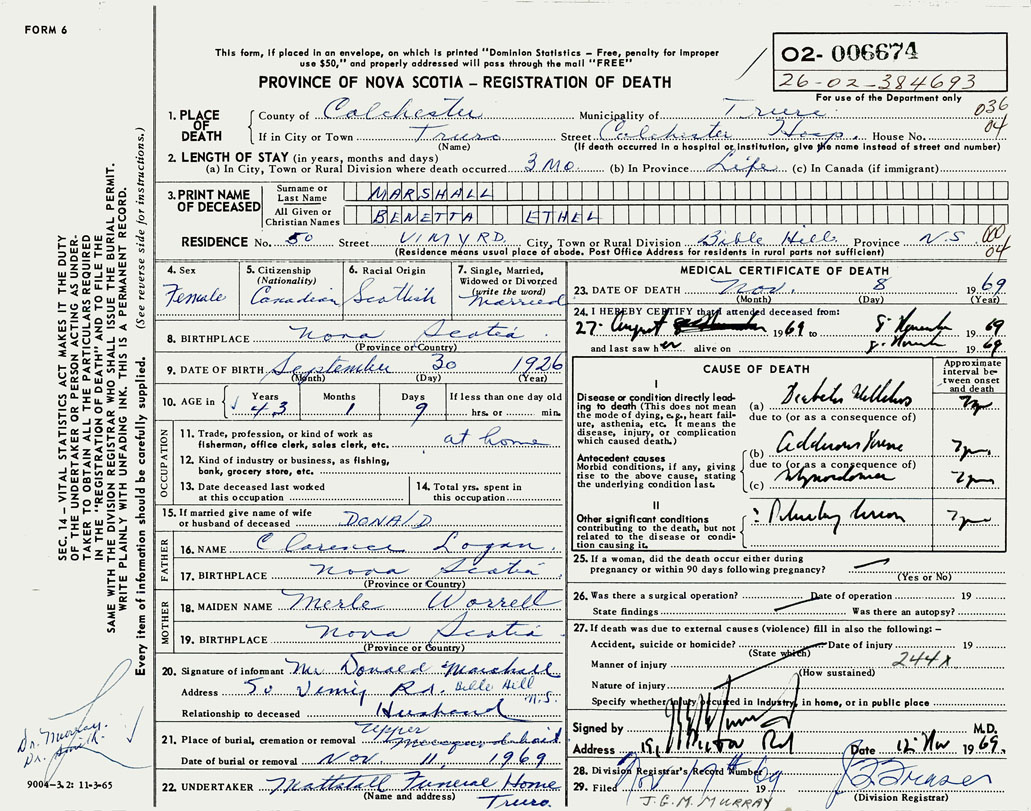 FORM 6
This form, if placed in an envelope, on which is printed "Dominion Statistics – Free, penalty for improper
use $50," and properly addressed will pass through the mail "FREE"
PROVINCE OF NOVA SCOTIA – REGISTRATION OF DEATH
02- 006674
26-02-384693
For use of the Department only
036
04
1. PLACE OF DEATH
County of Colchester Municipality of Truro
If in City or Town Truro Street Colchester Hosp. House No.
(Name) (If death occurred in a hospital or institution, give the name instead of street and number)
2. LENGTH OF STAY (in years, months and days)
(a) In City, Town or Rural Division where death occurred 3 Mo. (b) In Province Life (c) In Canada (if immigrant)
3. PRINT NAME OF DECEASED
Surname or Last Name MARSHALL
All Given or Christian Names BENETTA ETHEL
RESIDENCE No. 50 Street VIMY RD. City, Town or Rural Division Bible Hill Province N.S. 00
04
(Residence means usual place of abode. Post Office Address for residents in rural parts not sufficient)
4. Sex Female
5. Citizenship (Nationality) Canadian
6. Racial Origin Scottish
7. Single, Married, Widowed or Divorced (write the word) Married
8. BIRTHPLACE Nova Scotia
(Province or Country)
9. DATE OF BIRTH September 30 1926
(Month) (Day) (Year)
10. AGE in Years 43 Months 1 Days 9 If less than one day old hrs. or min.
OCCUPATION
11. Trade, profession, or kind of work as fisherman, office clerk, sales clerk, etc. at home
12. Kind of industry or business, as fishing, bank, grocery store, etc.
13. Date deceased last worked at this occupation
14. Total yrs. spent in this occupation
15. If married give name of wife or husband of deceased DONALD
FATHER
16. NAME Clarence Logan
17. BIRTHPLACE Nova Scotia
(Province or Country)
MOTHER
18. MAIDEN NAME Merle Worrell
19. BIRTHPLACE Nova Scotia
(Province or Country)
20. Signature of informant Mr Donald Marshall
Address 50 Vimy Rd. Bible Hill N.S.
Relationship to deceased Husband
21. Place of burial, cremation or removal Upper
Date of burial or removal Nov. 11, 1969
22. UNDERTAKER Mattatall Funeral Home
(Name and address) Truro
MEDICAL CERTIFICATE OF DEATH
23. DATE OF DEATH Nov. 8 1969
(Month) (Day) (Year)
24. I HEREBY CERTIFY that I attended deceased from:
27 August 1969 to 8 November 1969
and last saw her alive on 8 November 1969
CAUSE OF DEATH
Approximate interval between onset and death
I
Disease or condition directly leading to death (This does not mean the mode of dying, e.g., heart failure, asthenia, etc. It means the disease, injury, or complication which caused death.)
(a) Diabetes Mellitus
due to (or as a consequence of)
Antecedent causes
Morbid conditions, if any, giving rise to the above cause, stating the underlying condition last.
(b)
due to (or as a consequence of)
(c)
II
Other significant conditions contributing to the death, but not related to the disease or condition causing it.
25. If a woman, did the death occur either during pregnancy or within 90 days following pregnancy?
(Yes or No)
26. Was there a surgical operation? Date of operation 19
State findings Was there an autopsy?
27. If death was due to external causes (violence) fill in also the following: –
Accident, suicide or homicide? Date of injury 19
(State which)
Manner of injury 244x
(How sustained)
Nature of injury
Specify whether injury occurred in industry, in home, or in public place
Signed by M.D.
Address Rd Date 12 Nov 1969
28. Division Registrar's Record Number
29. Filed Nov 17th 69 19
J.G.M. MURRAY
(Division Registrar)
SEC. 14 – VITAL STATISTICS ACT MAKES IT THE DUTY
OF THE UNDERTAKER OR PERSON ACTING AS UNDER-
TAKER TO OBTAIN ALL THE PARTICULARS REQUIRED
IN THE "REGISTRATION OF DEATH" AND TO FILE THE
SAME WITH THE DIVISION REGISTRAR WHO SHALL ISSUE THE BURIAL PERMIT.
WRITE PLAINLY WITH UNFADING INK. THIS IS A PERMANENT RECORD.
Every item of information should be carefully supplied. (See reverse side for instructions.)
Dr. Murray
9004-3.2: 11-3-65